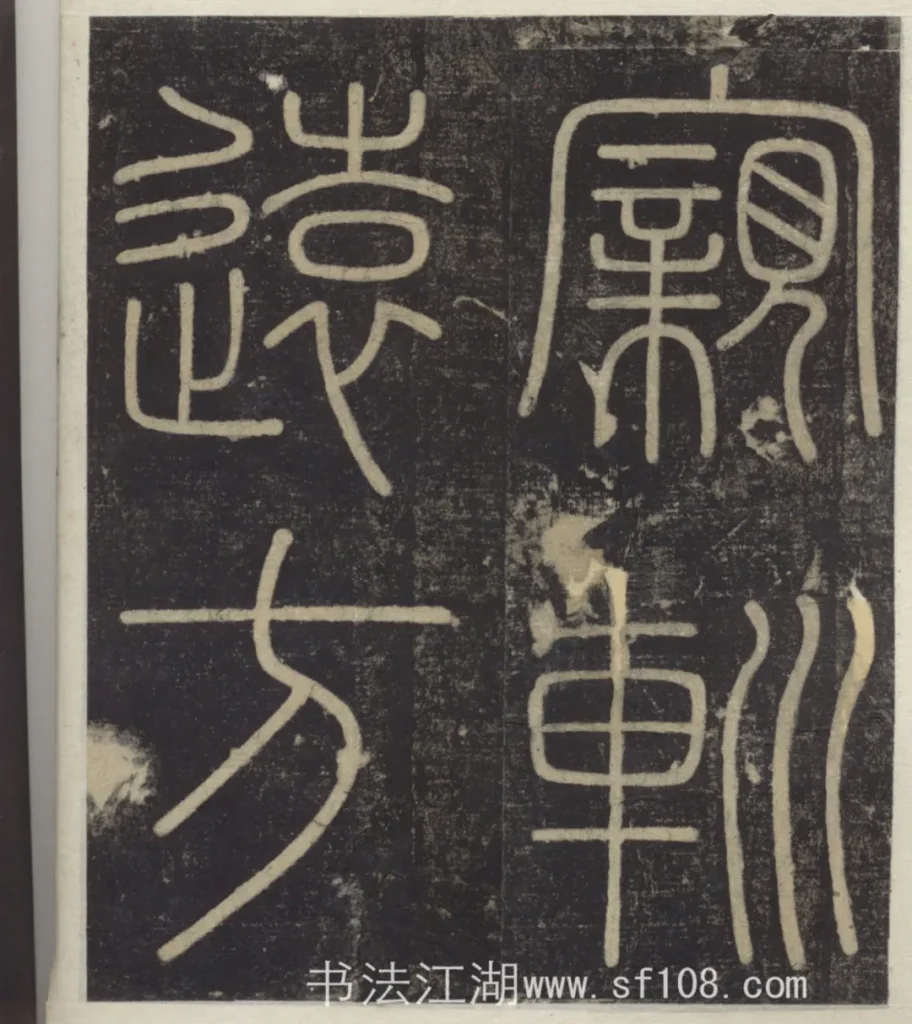 寴車川
遠方
书法江湖www.sf108.com